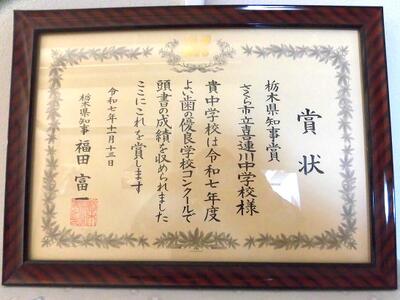 賞状
栃木県知事賞
さくら市立喜連川中学校様
貴中学校は令和七年度
よい歯の優良学校コンクールで
頭書の成績を収められました
ここにこれを賞します
令和七年十一月十三日
栃木県知事 福田富一